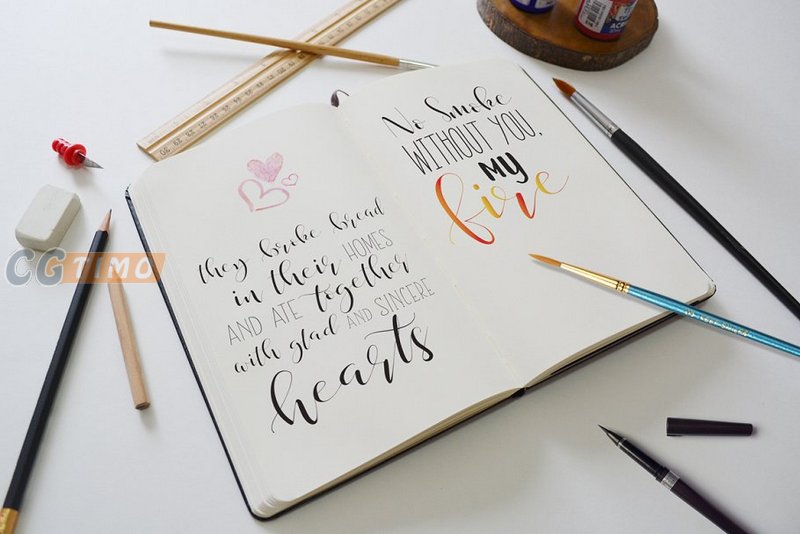 they broke bread
in their HOMES
AND ATE together
with glad AND SINCERE
hearts
No Smoke
WITHOUT YOU,
MY
fire
CGTIMO